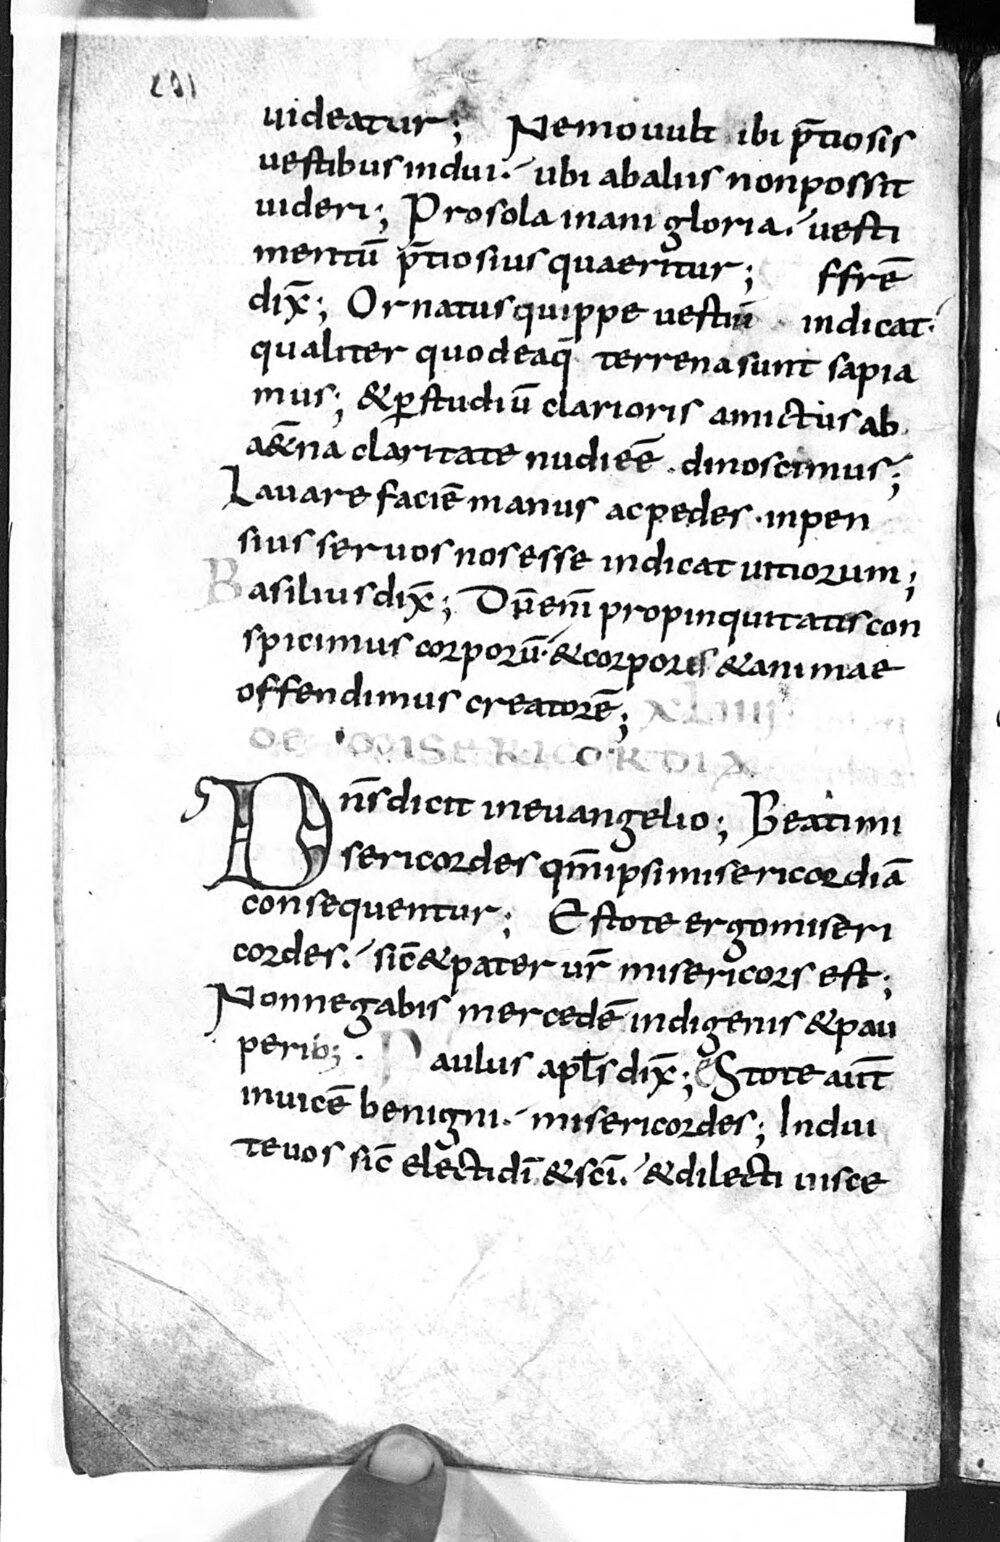 uideatur; Nemo uult ibi p̄tiosis
uestibus indui. ubi ab aliis non possit
uideri; Pro sola inani gloria. uesti
mentū p̄tiosius quaeritur; ffrē
dix̄; Ornatus quippe uestiū indicat.
qualiter quo deaq̄ terrena sunt sapia
mus; & ꝑ studiū clarioris amictus ab
aet̄na claritate nudi eē̄. dinoscimus;
Lauare faciē manus ac pedes. inpen
sius seruos nos esse indicat uitiorum;
Basilius dix̄; Dū enī propinquitatis con
spicimus corporū. & corporis & animae
offendimus creatorē; XLIIII
DE MISERICORDIA
Dn̄s dicit in euangelio; Beati mi
sericordes qm̄ ipsi misericordiā
consequentur; Estote ergo miseri
cordes. sic̄ & pater ur̄ misericors est;
Non negabis mercedē indigenis & pau
perib; . Paulus apl̄s dix̄; eStote aut̄
inuicē benigni. misericordes; Indui
te uos sic̄ electi dī & sc̄i. & dilecti uisce